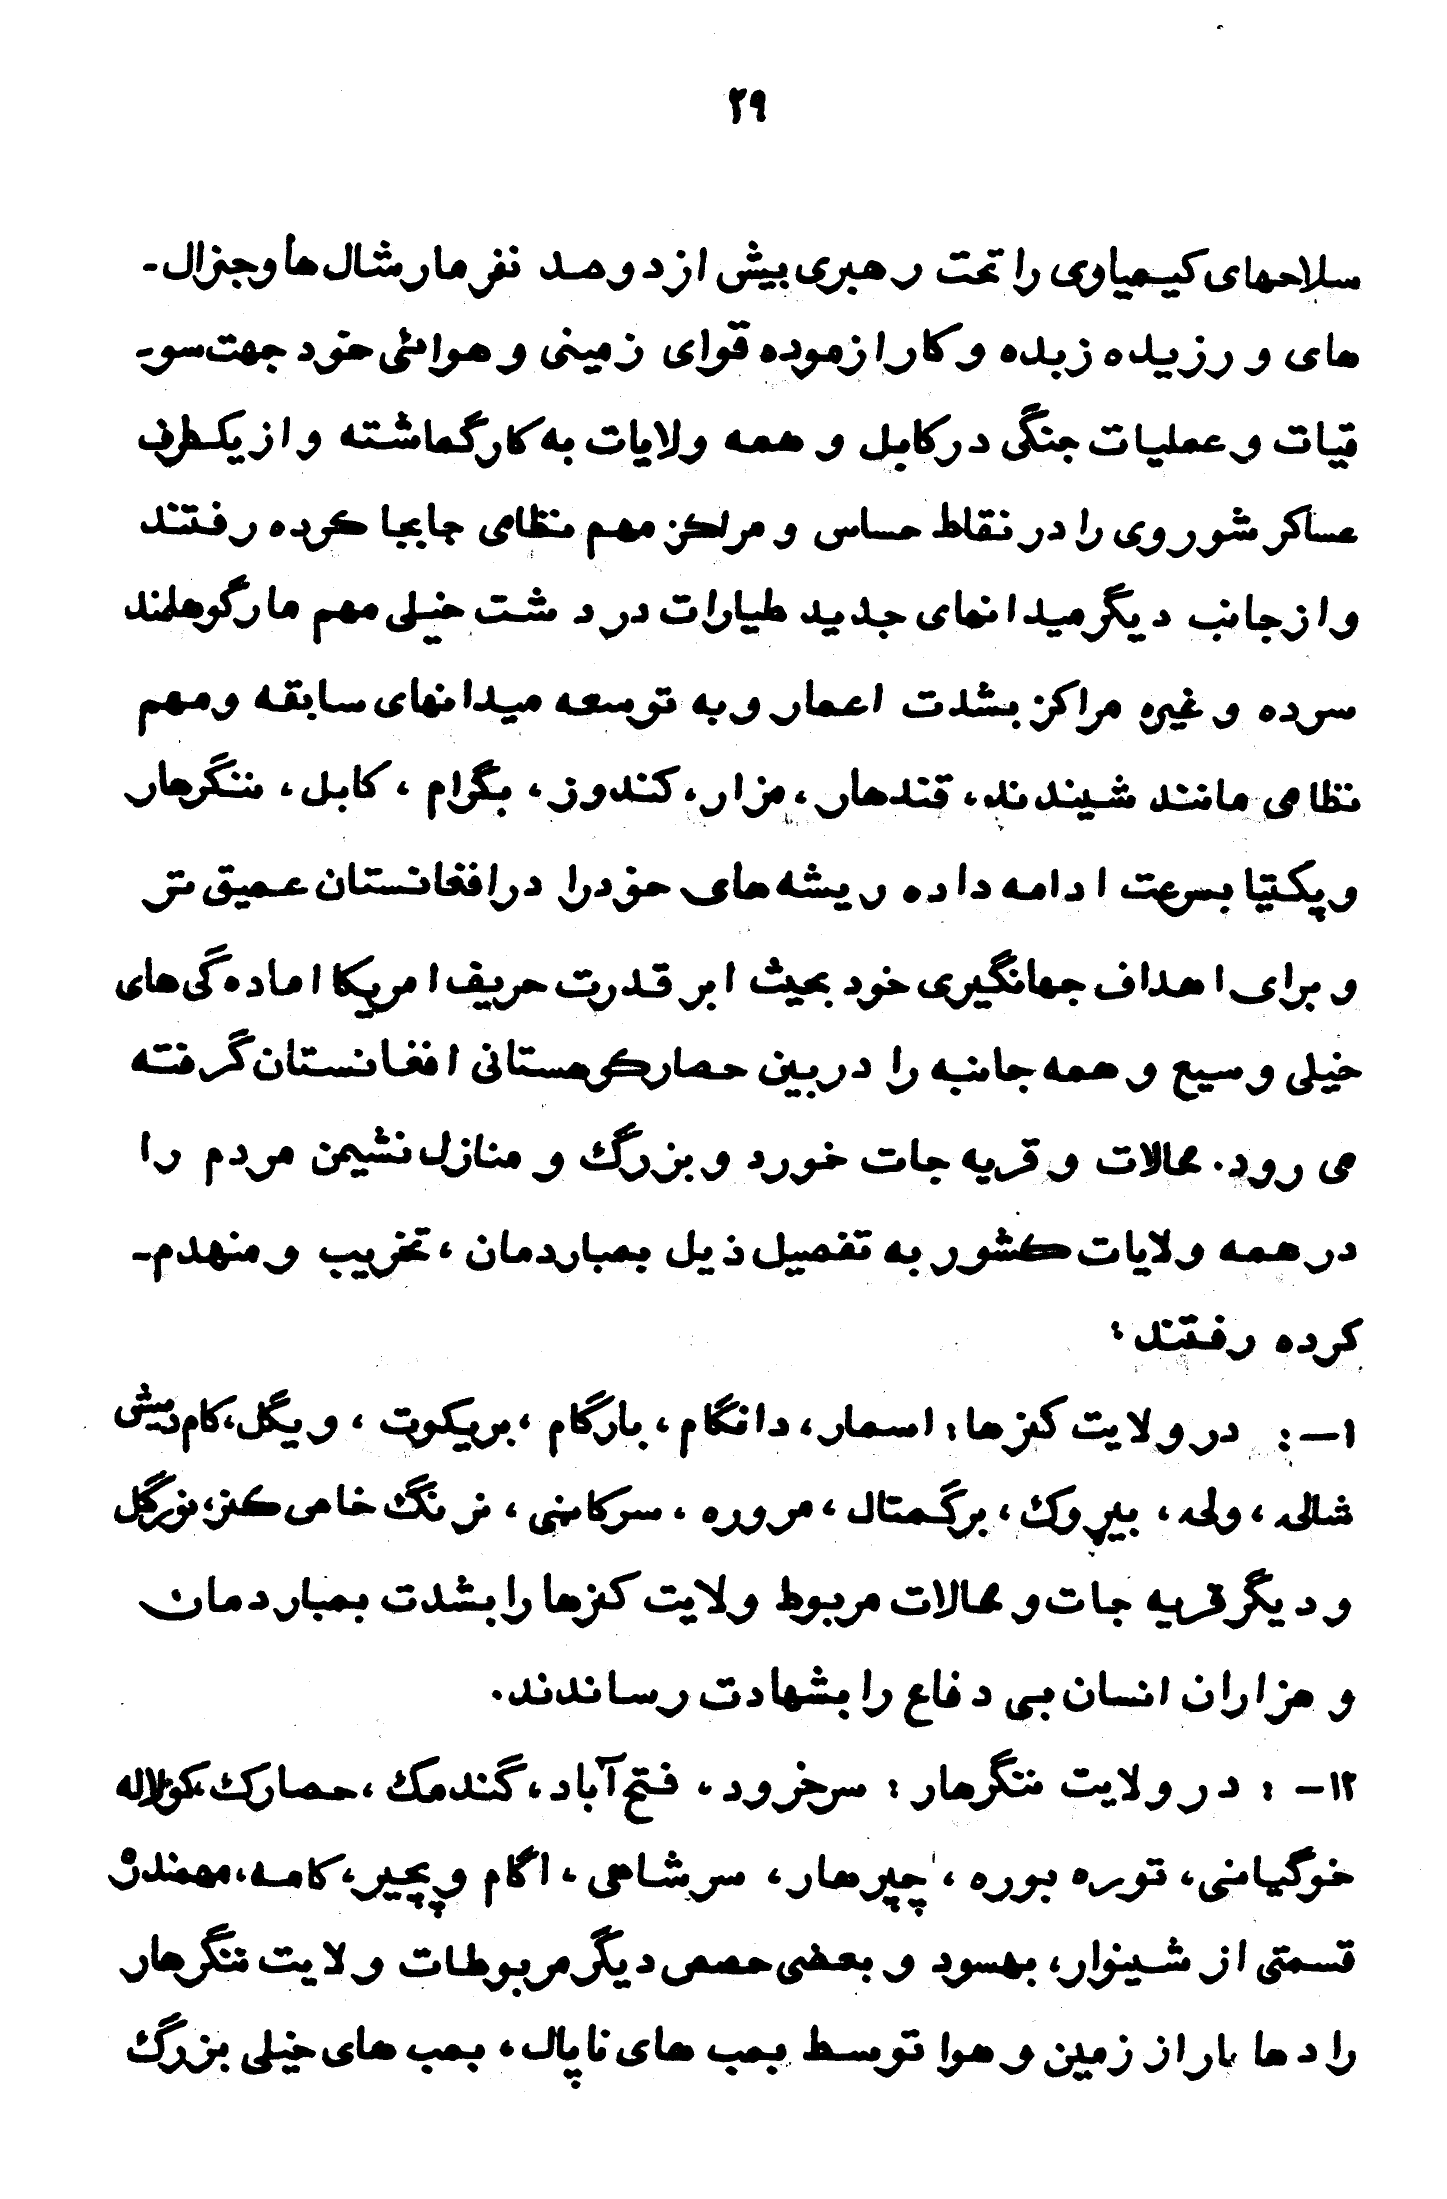 ۲۹
سلاحهای کیمیاوی را تحت رهبری بیش از دوصد نفر مارشال ها وجنرال-
های ورزیده زبده وکار ازموده قوای زمینی و هوائی خود جهت سو-
قیات وعملیات جنگی درکابل و همه ولایات به کارگماشته و از یکطرف
عساکر شوروی را در نقاط حساس و مراکز مهم نظامی جابجا کرده رفتند
و از جانب دیگر میدانهای جدید طیارات در دشت خیلی مهم مارگو هلمند
سرده و غیره مراکز بشدت اعمار وبه توسعه میدانهای سابقه ومهم
نظامی مانند شیندند، قندهار، مزار، کندوز، بگرام، کابل، ننگرهار
وپکتیا بسرعت ادامه داده ریشه های خودرا درافغانستان عمیق تر
و برای اهداف جهانگیری خود بحیث ابر قدرت حریف امریکا اماده گی های
خیلی وسیع و همه جانبه را دربین حصارکوهستانی افغانستان گرفته
می رود. محالات و قریه جات خورد و بزرگ و منازل نشیمن مردم را
در همه ولایات کشور به تفصیل ذیل بمباردمان، تخریب و منهدم-
کرده رفتند:
۱-: در ولایت کنرها: اسمار، دانگام، بارگام، بریکوت، ویگل، کام دیش
شالی، ولحه، بیروک، برگمتال، مروره، سرکانی، نرنگ خاص کنر، نورگل
و دیگر قریه جات و محالات مربوط ولایت کنرها را بشدت بمباردمان
و هزاران انسان بی دفاع را بشهادت رساندند.
۱۲-: در ولایت ننگرهار: سرخرود، فتح آباد، گندمک، حصارک،
خوگیانی، توره بوره، چپرهار، سرشاهی، اگام و پچیر، کامه، مهمنددره
قسمتی از شینوار، بهسود و بعضی حصص دیگر مربوطات ولایت ننگرهار
را دها بار از زمین و هوا توسط بمب های ناپال، بمب های خیلی بزرگ